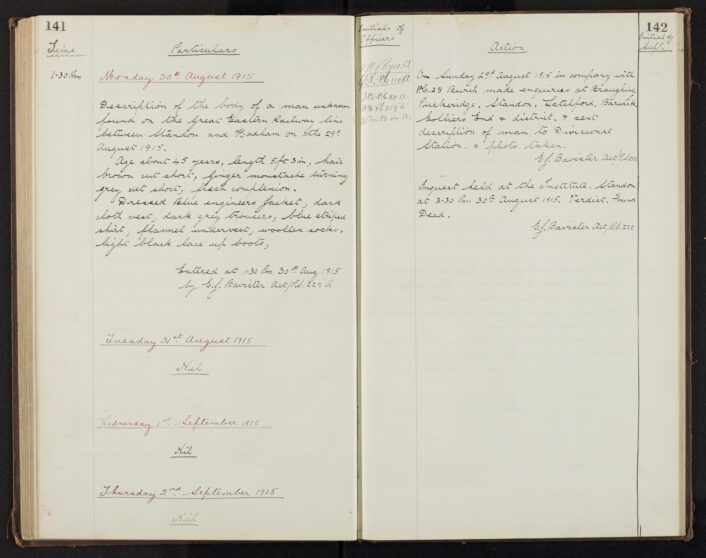 141
Time
Particulars
1-30 Pm
Monday 30th August 1915
Description of the body of a man unknown
found on the Great Eastern Railway line
between Standon and Hadham on the 29th
August 1915.
Age about 45 years, length 5ft 3in, hair
brown cut short, ginger moustache turning
grey cut short, fresh complexion.
Dressed Blue engineers jacket, dark
cloth vest, dark grey trousers, blue striped
shirt, flannel undervest, woollen socks,
light black lace up boots,
Entered at 1-30 Pm 30th Aug 1915
by E.J. Bavister Act/Pd. 222 'A'
Tuesday 31st August 1915
Nil
Wednesday 1st September 1915
Nil
Thursday 2nd September 1915
Nil
Initials of
Officers
142
Initial of
Supt.
Action
On Sunday 29th August 1915 in company with
Pc. 28 made enquiries at Braughing
Puckeridge, Standon, Latchford, Barwick,
Colliers End & district, & sent
description of man to Divisional
Station. & photo taken.
E.J. Bavister Act/Pd. 222
Inquest held at the Institute, Standon
at 3-30 Pm 30th August 1915. Verdict, Found
Dead.
E.J. Bavister Act/Pd. 222